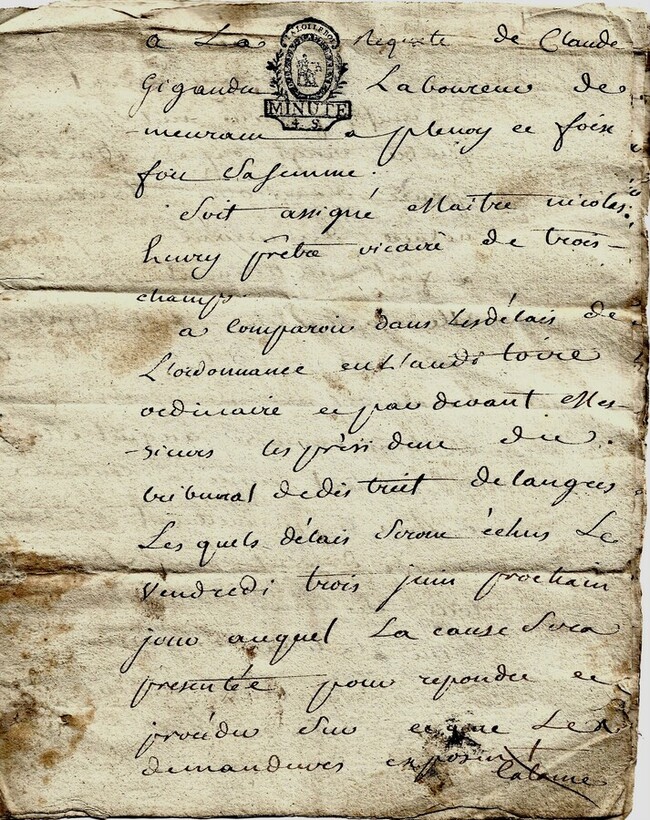 a La Requete de Claude
LA LOI LE ROI
MINUTE
4. S.
Gigandu Laboureur de
-meurant a plenoy et foix
foix Sa femme.
Soit assigné Maitre nicolas
henry prêtre vicaire de trois-
champ.
a Comparoir dans Les délais de
L'ordonnance en L'auditoire
ordinaire et par devant Mes-
-sieurs les président du
tribunal de district de langres
Les quels délais Seront échus Le
Vendredi trois juin prochain
jour auquel La cause Sera
presentée pour repondre et
procéder Sur ce que Les
demandeurs exposent